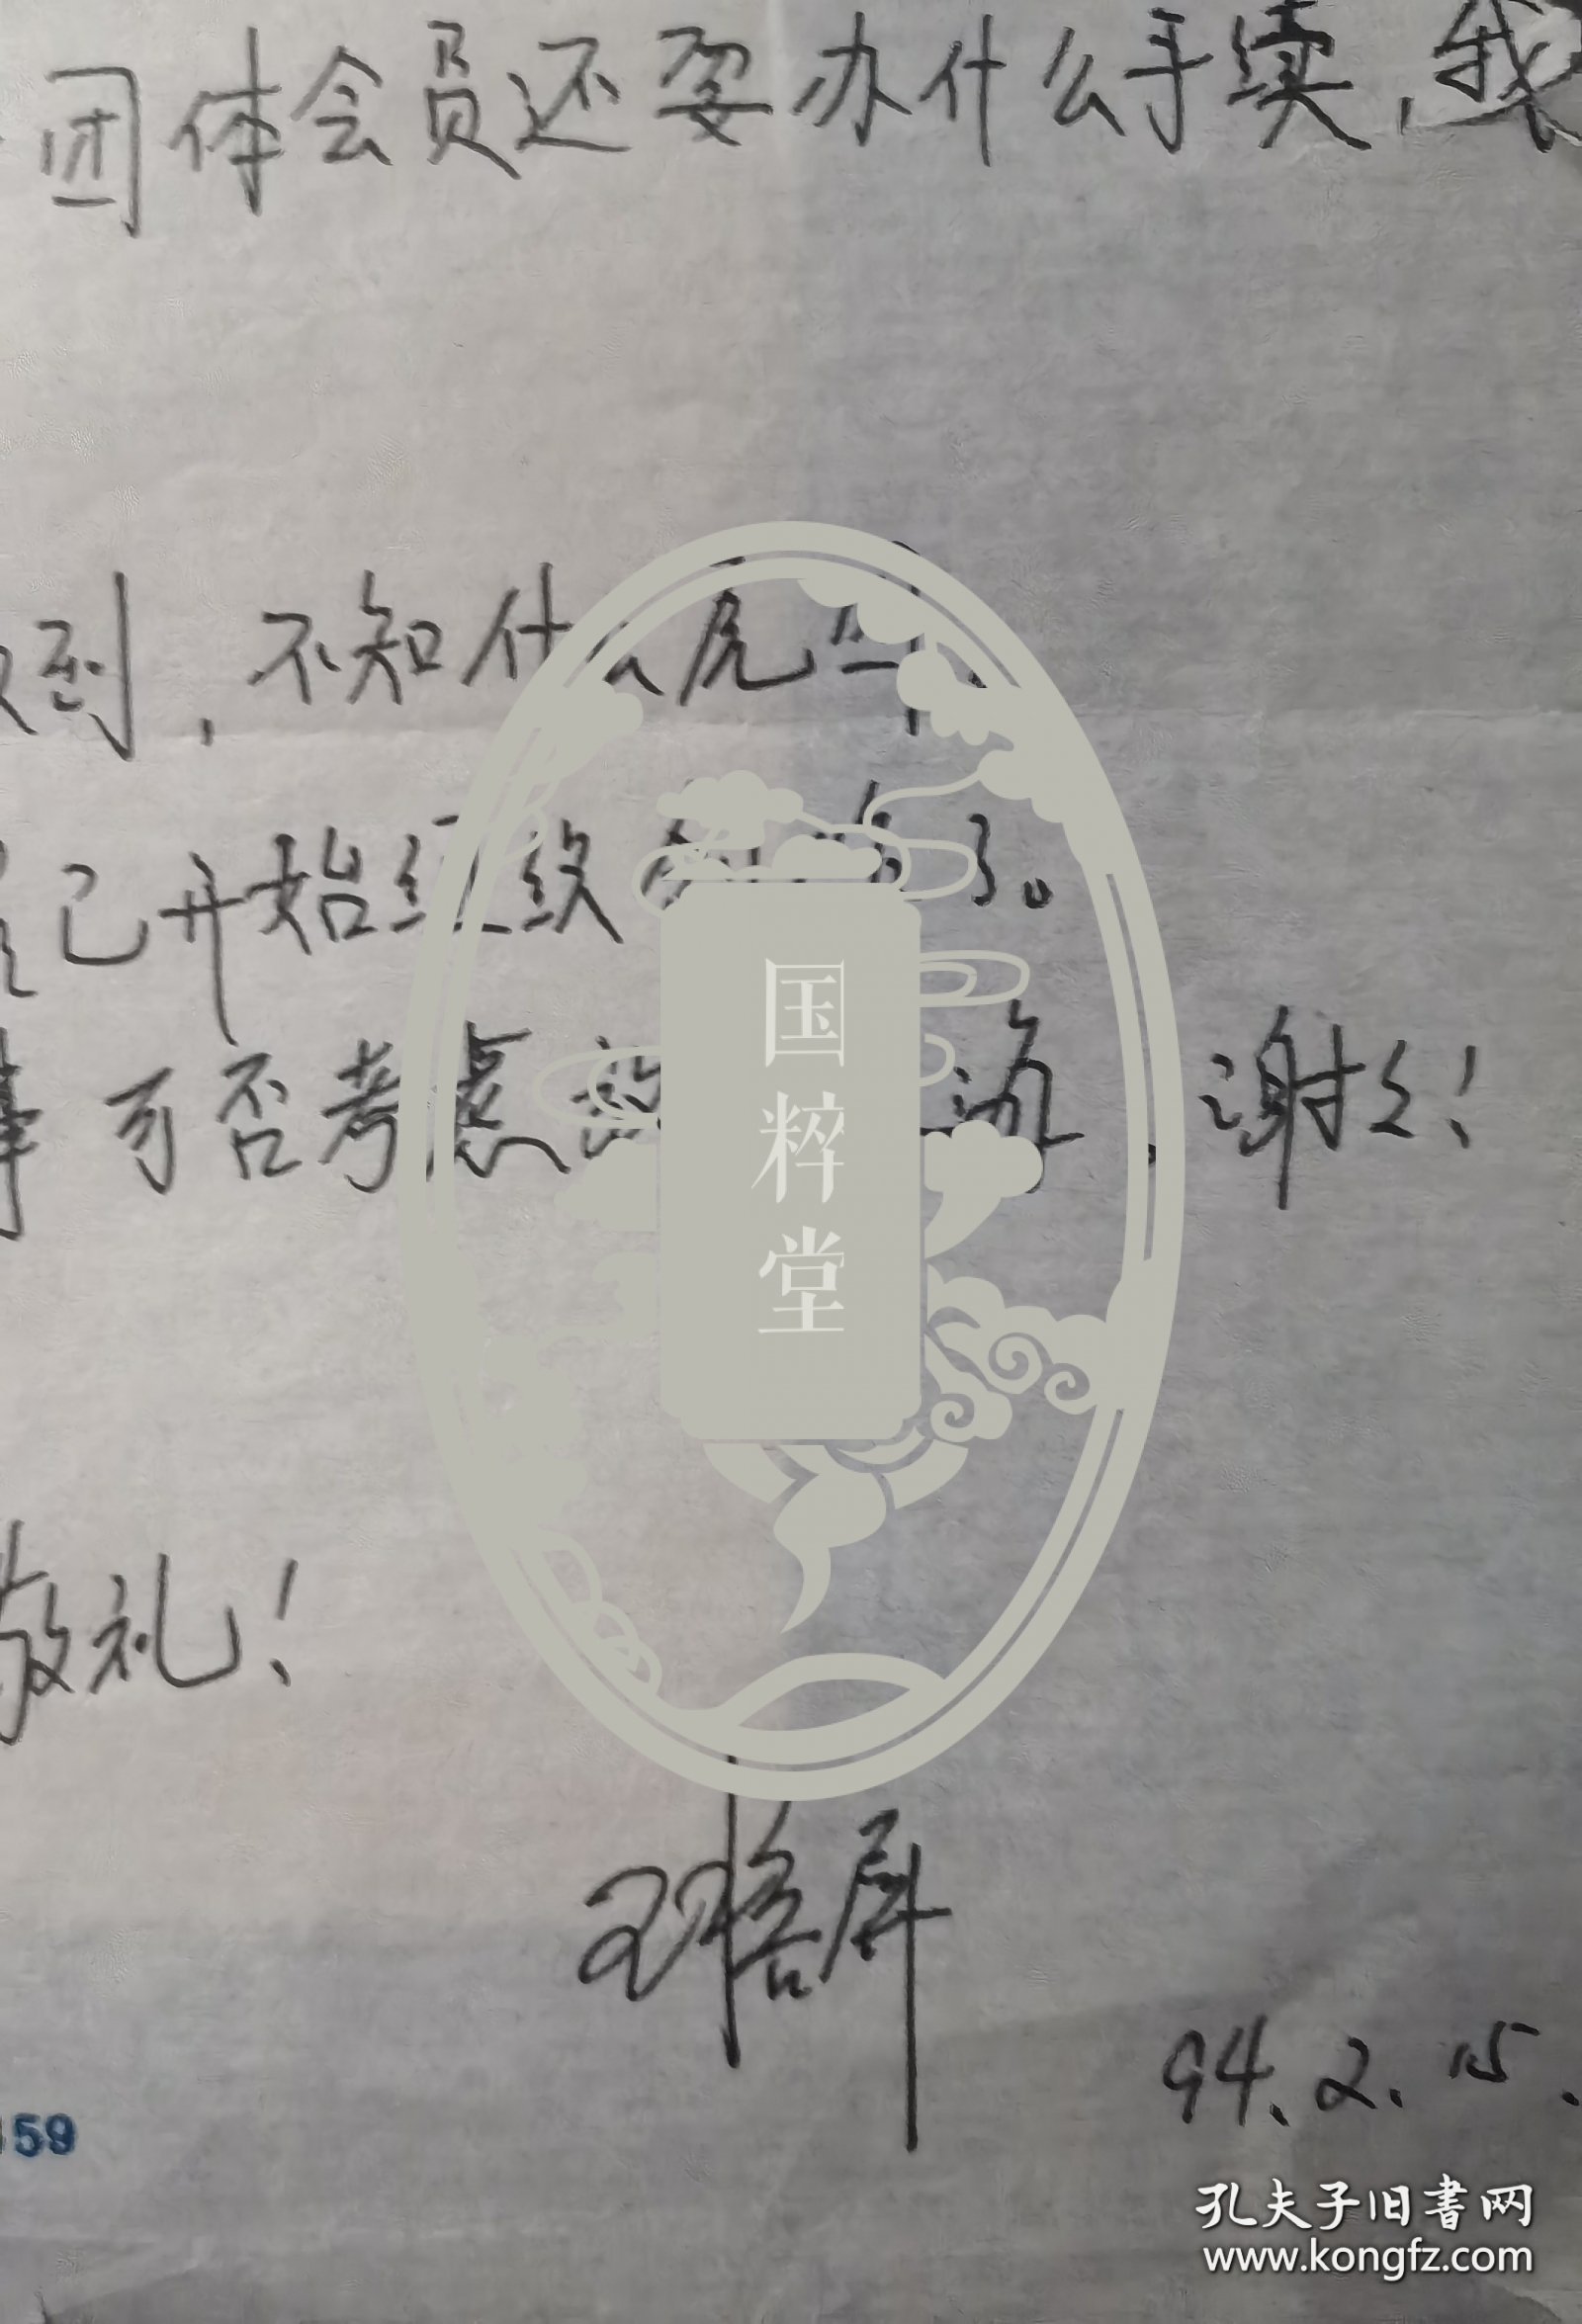 团体会员还要办什么手续,我
到,不知什么原因。
已开始经
事可否考虑,谢谢!
敬礼!
94.2.15.
159
国粹堂
孔夫子旧书网
www.kongfz.com